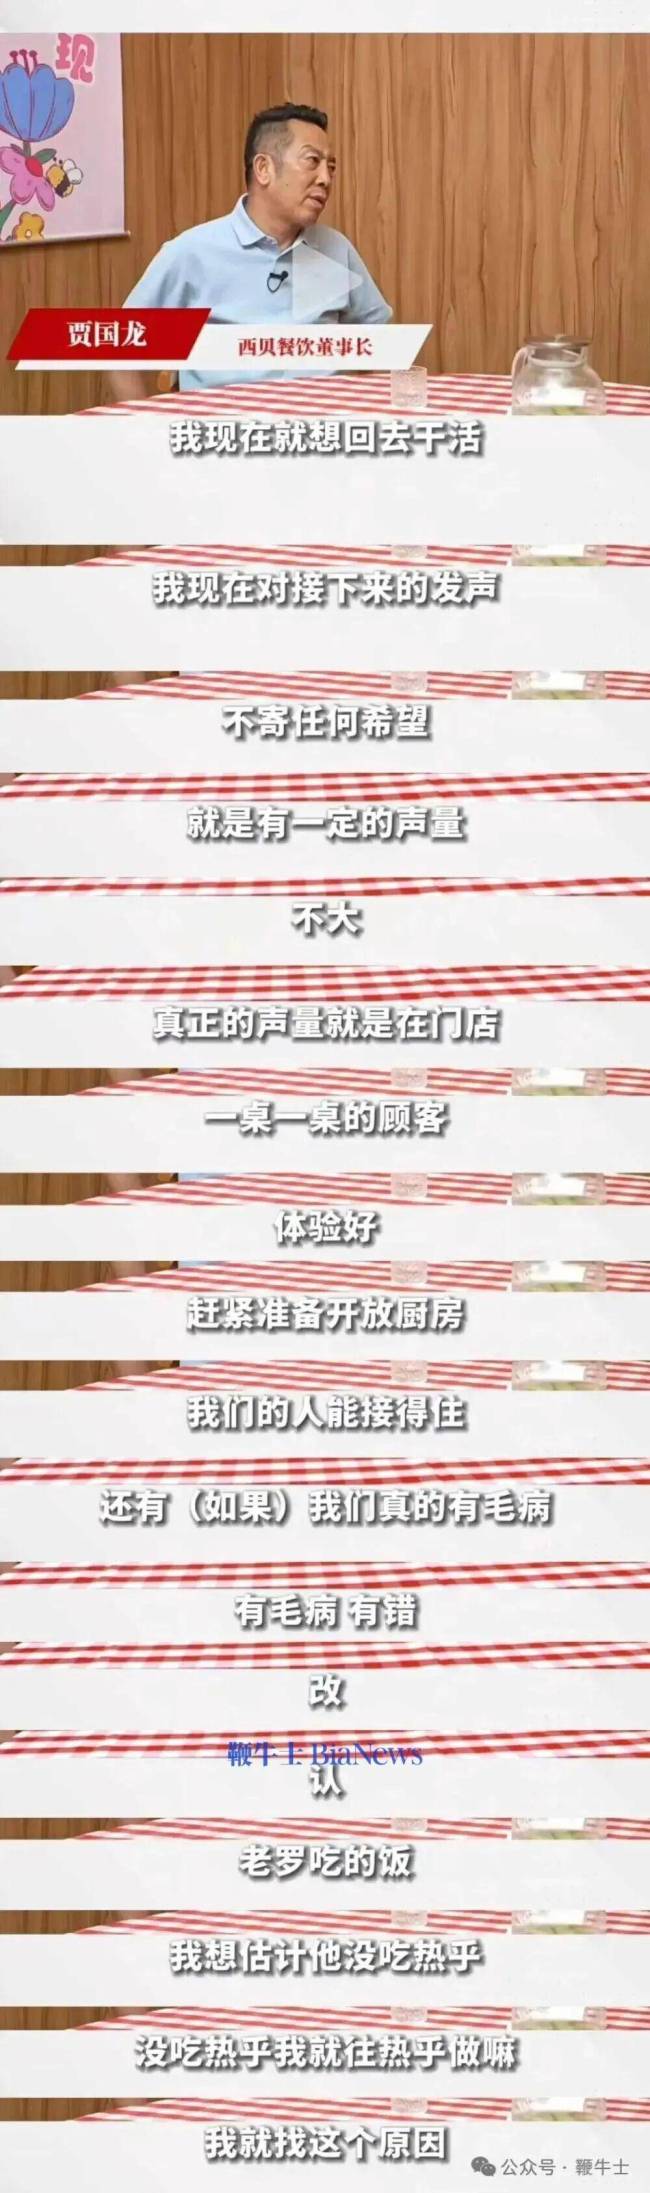 现
贾国龙
西贝餐饮董事长
我现在就想回去干活
我现在对接下来的发声
不寄任何希望
就是有一定的声量
不大
真正的声量就是在门店
一桌一桌的顾客
体验好
赶紧准备开放厨房
我们的人能接得住
还有（如果）我们真的有毛病
有毛病 有错
改
鞭牛士 BiaNews
认
老罗吃的饭
我想估计他没吃热乎
没吃热乎我就往热乎做嘛
我就找这个原因
公众号 · 鞭牛士